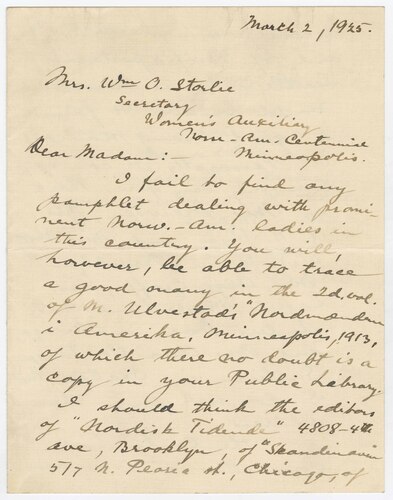 March 2, 1925.
Mrs. Wm O. Storlie
Secretary
Women's Auxiliary
Norw.-Am. Centennial
Minneapolis.
Dear Madam:-
I fail to find any
pamphlet dealing with promi-
nent Norw.-Am. ladies in
this country. You will,
however, be able to trace
a good many in the 2d. vol.
of M. Ulvestad's "Nordmændene
i Amerika, Minneapolis, 1913,
of which there no doubt is a
copy in your Public Library.
I should think the editors
of "Nordisk Tidende" 4808-4th
ave, Brooklyn, of "Skandinaven
517 N. Peoria st., Chicago, of